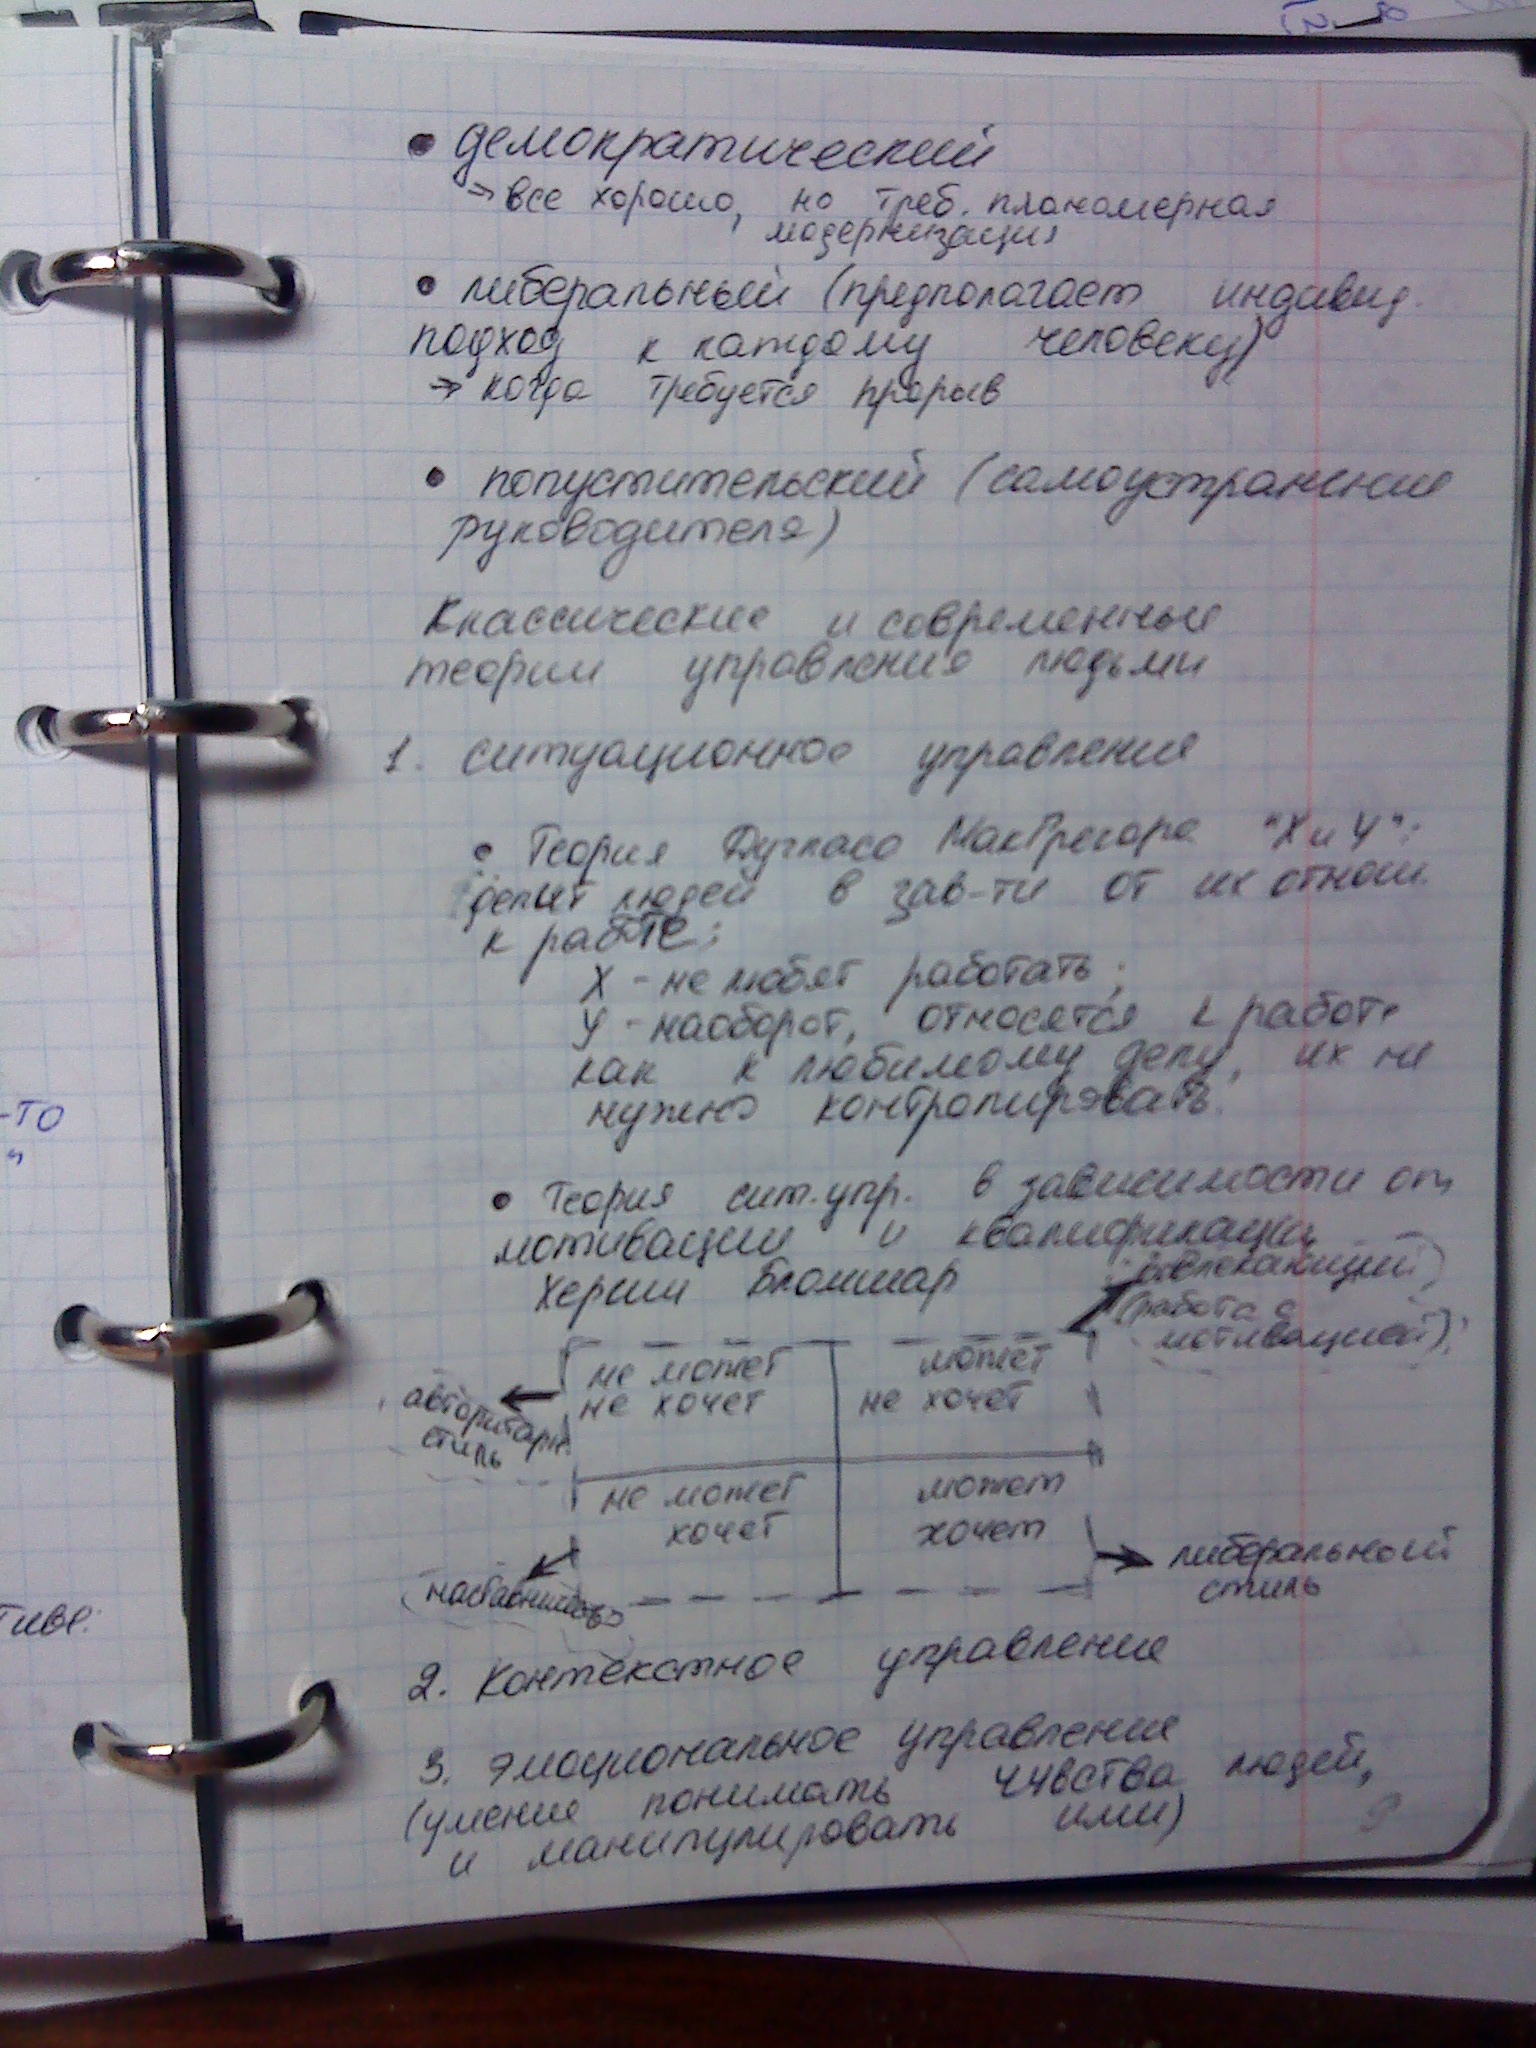 • демократический
→ все хорошо, но треб. планомерная
модернизация
• либеральный (предполагает индивид.
подход к каждому человеку)
→ когда требуется прорыв
• попустительский (самоустранение
руководителя)
Классические и современные
теории управления людьми
1. ситуационное управление
• Теория Дугласа МакГрегора "X и Y":
делит людей в зав-ти от их отнош.
к работе;
X - не любят работать;
Y - наоборот, относятся к работе
как к любимому делу, их не
нужно контролировать.
• Теория сит. упр. в зависимости от
мотивации и квалификации
Херши Бланшар
вовлекающий
(работа с
мотивацией)
не может
не хочет
может
не хочет
авторитарн.
стиль
не может
хочет
может
хочет
наставничество
либеральный
стиль
2. Контекстное управление
3. Эмоциональное управление
(умение понимать чувства людей,
и манипулировать ими)
9
-то
тиве: